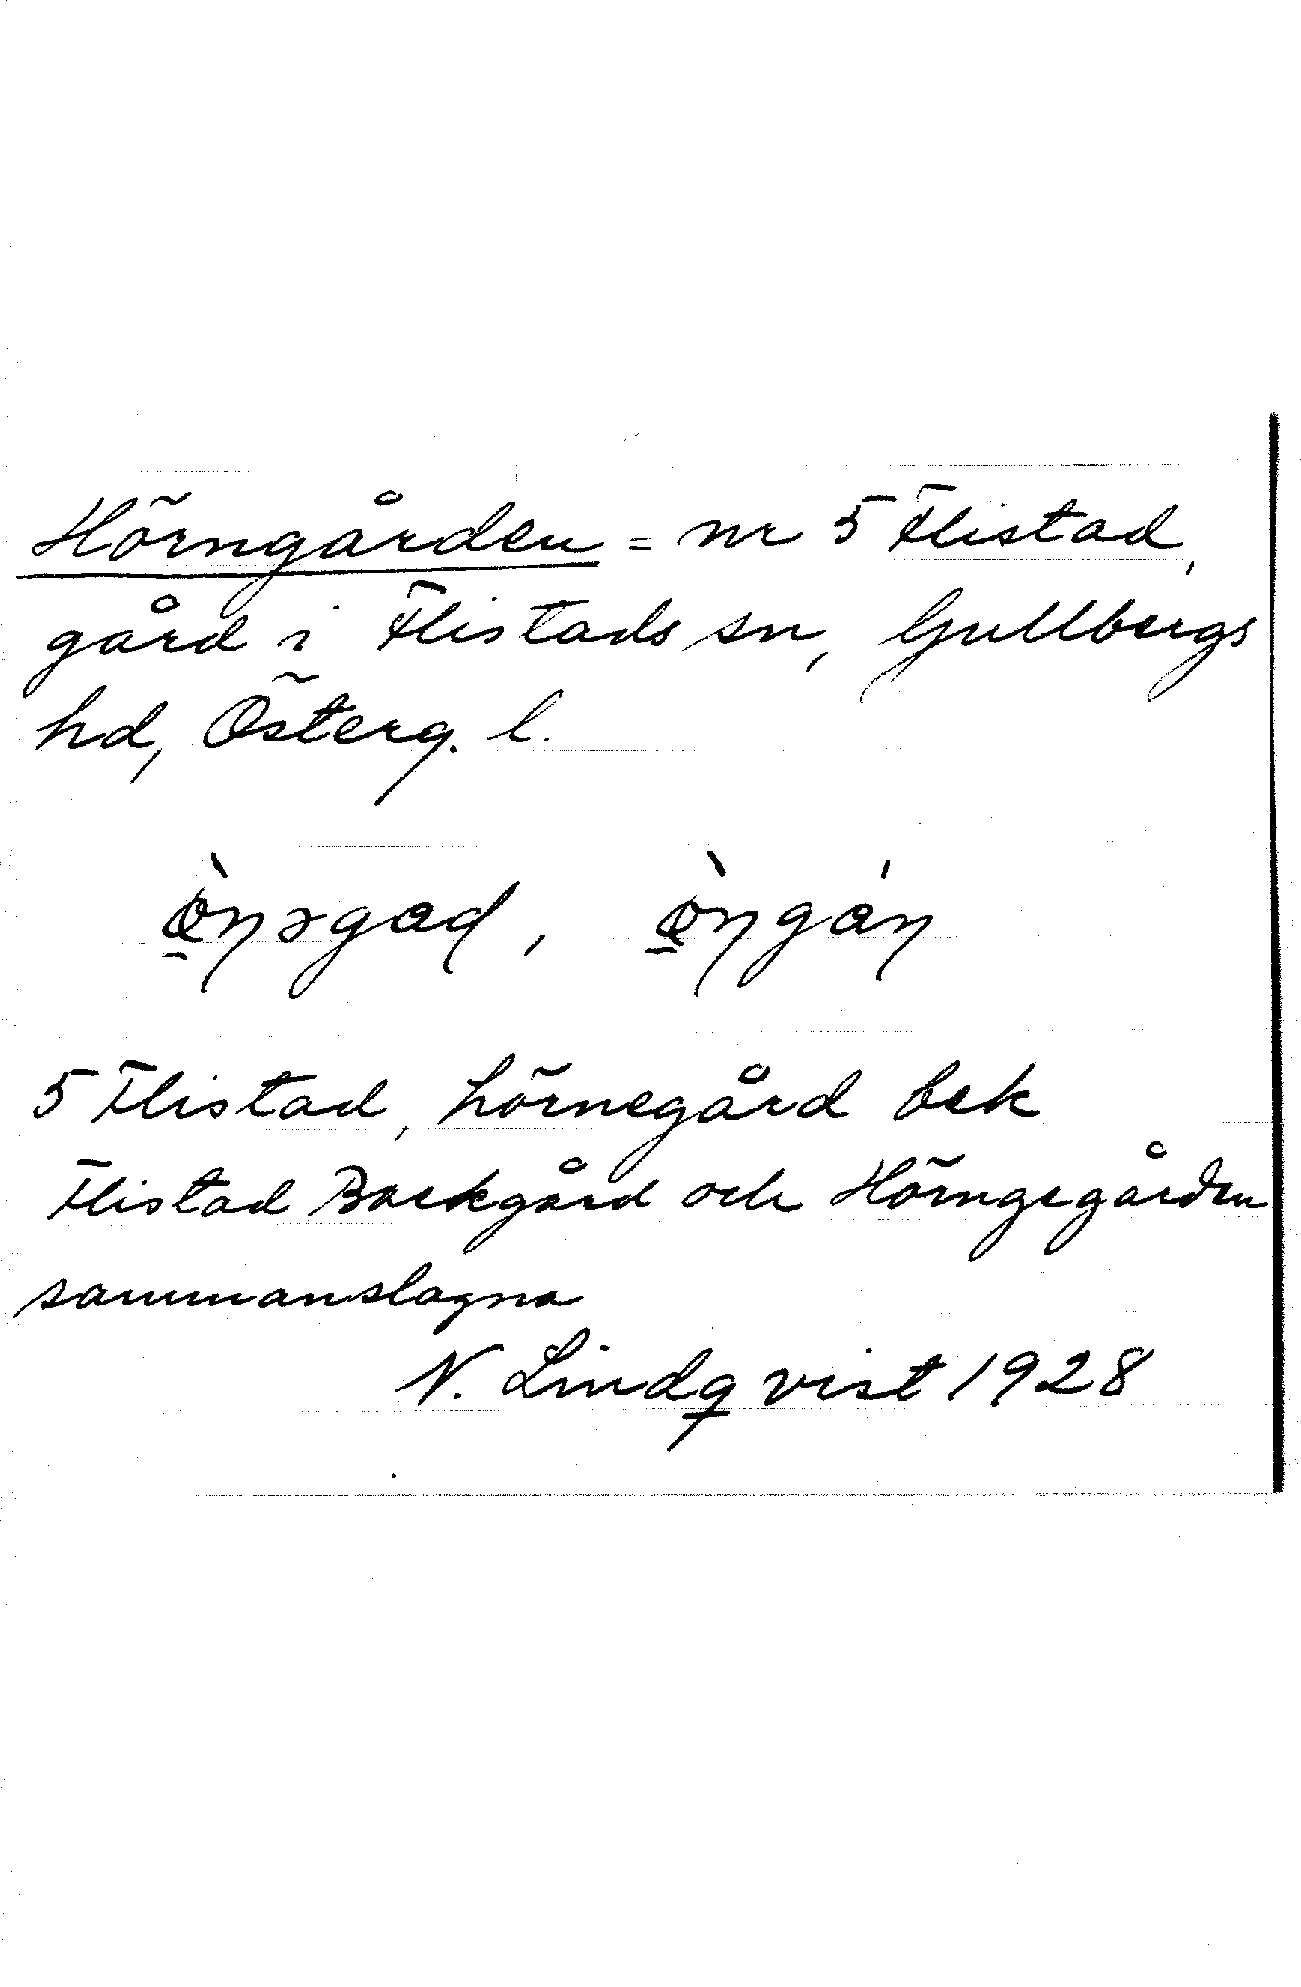 Hörngården = nr 5 Flistad,
gård i Flistads sn, Gullbergs
hd, Österg. l.
5 Flistad, hörnegård bek
Flistad Backgård och Hörngegården
sammanslagna
N. Lindqvist 1928